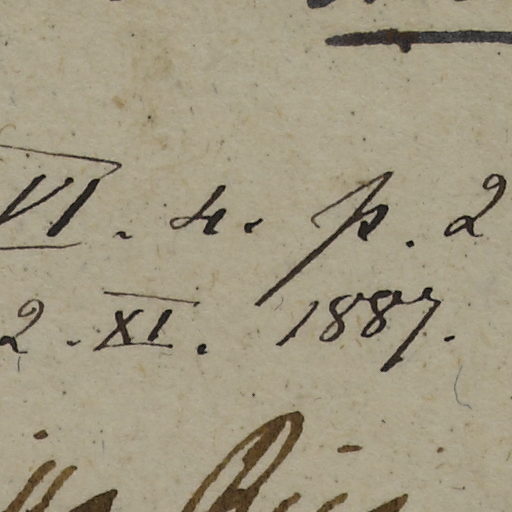 VI. 4. p. 2
2. XI. 1887.